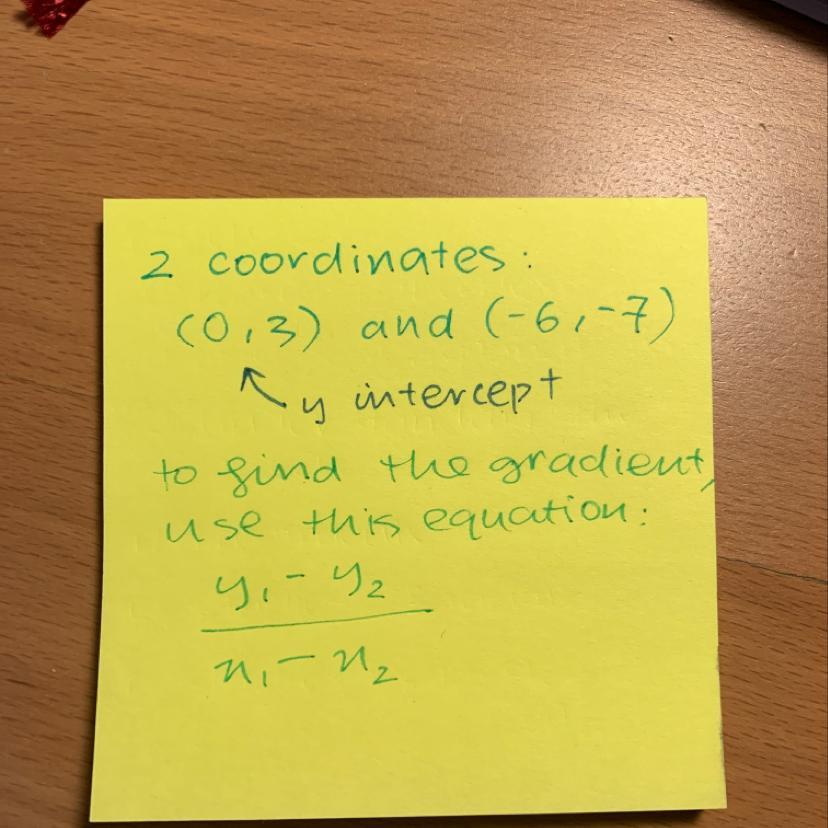 2 coordinates:
(0,3) and (-6,-7)
↖ y intercept
to find the gradient,
use this equation:
y₁ - y₂
x₁ - x₂